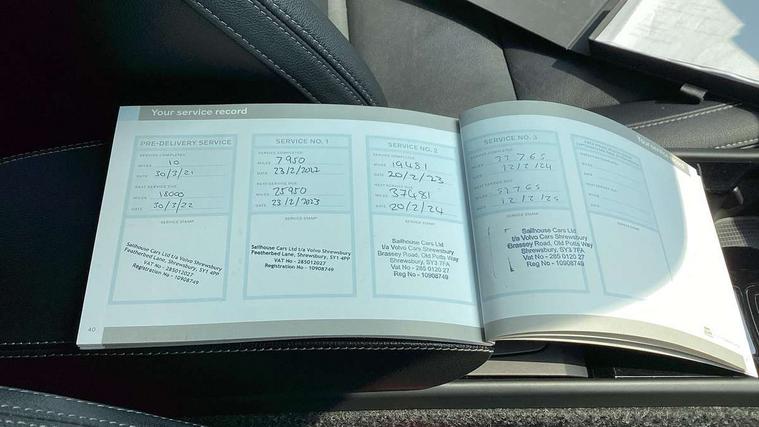 Your service record
PRE-DELIVERY SERVICE
SERVICE COMPLETED
MILES 10
DATE 30/3/21
NEXT SERVICE DUE
MILES 18000
DATE 30/3/22
SERVICE STAMP
Sailhouse Cars Ltd t/a Volvo Shrewsbury
Featherbed Lane, Shrewsbury, SY1 4PP
VAT No - 285012027
Registration No - 10908749
SERVICE NO. 1
SERVICE COMPLETED
MILES 7950
DATE 23/2/2022
NEXT SERVICE DUE
MILES 25950
DATE 23/2/2023
SERVICE STAMP
Sailhouse Cars Ltd t/a Volvo Shrewsbury
Featherbed Lane, Shrewsbury, SY1 4PP
VAT No - 285012027
Registration No - 10908749
SERVICE NO. 2
SERVICE COMPLETED
MILES 19481
DATE 20/2/23
NEXT SERVICE DUE
MILES 37481
DATE 20/2/24
SERVICE STAMP
Sailhouse Cars Ltd
t/a Volvo Cars Shrewsbury
Brassey Road, Old Potts Way
Shrewsbury, SY3 7FA
Vat No - 285 0120 27
Reg No - 10908749
40
Your service
SERVICE NO. 3
SERVICE COMPLETED
MILES
DATE 12/2/24
NEXT SERVICE DUE
MILES
DATE 12/2/25
SERVICE STAMP
Sailhouse Cars Ltd
t/a Volvo Cars Shrewsbury
Brassey Road, Old Potts Way
Shrewsbury, SY3 7FA
Vat No - 285 0120 27
Reg No - 10908749